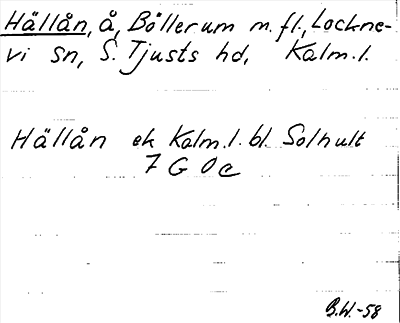 Hällån, å, Böllerum m.fl., Lockne-
vi sn, S. Tjusts hd, Kalm.l.
Hällån ek Kalm.l. bl. Solhult
7 G 0 c
B.W.-58